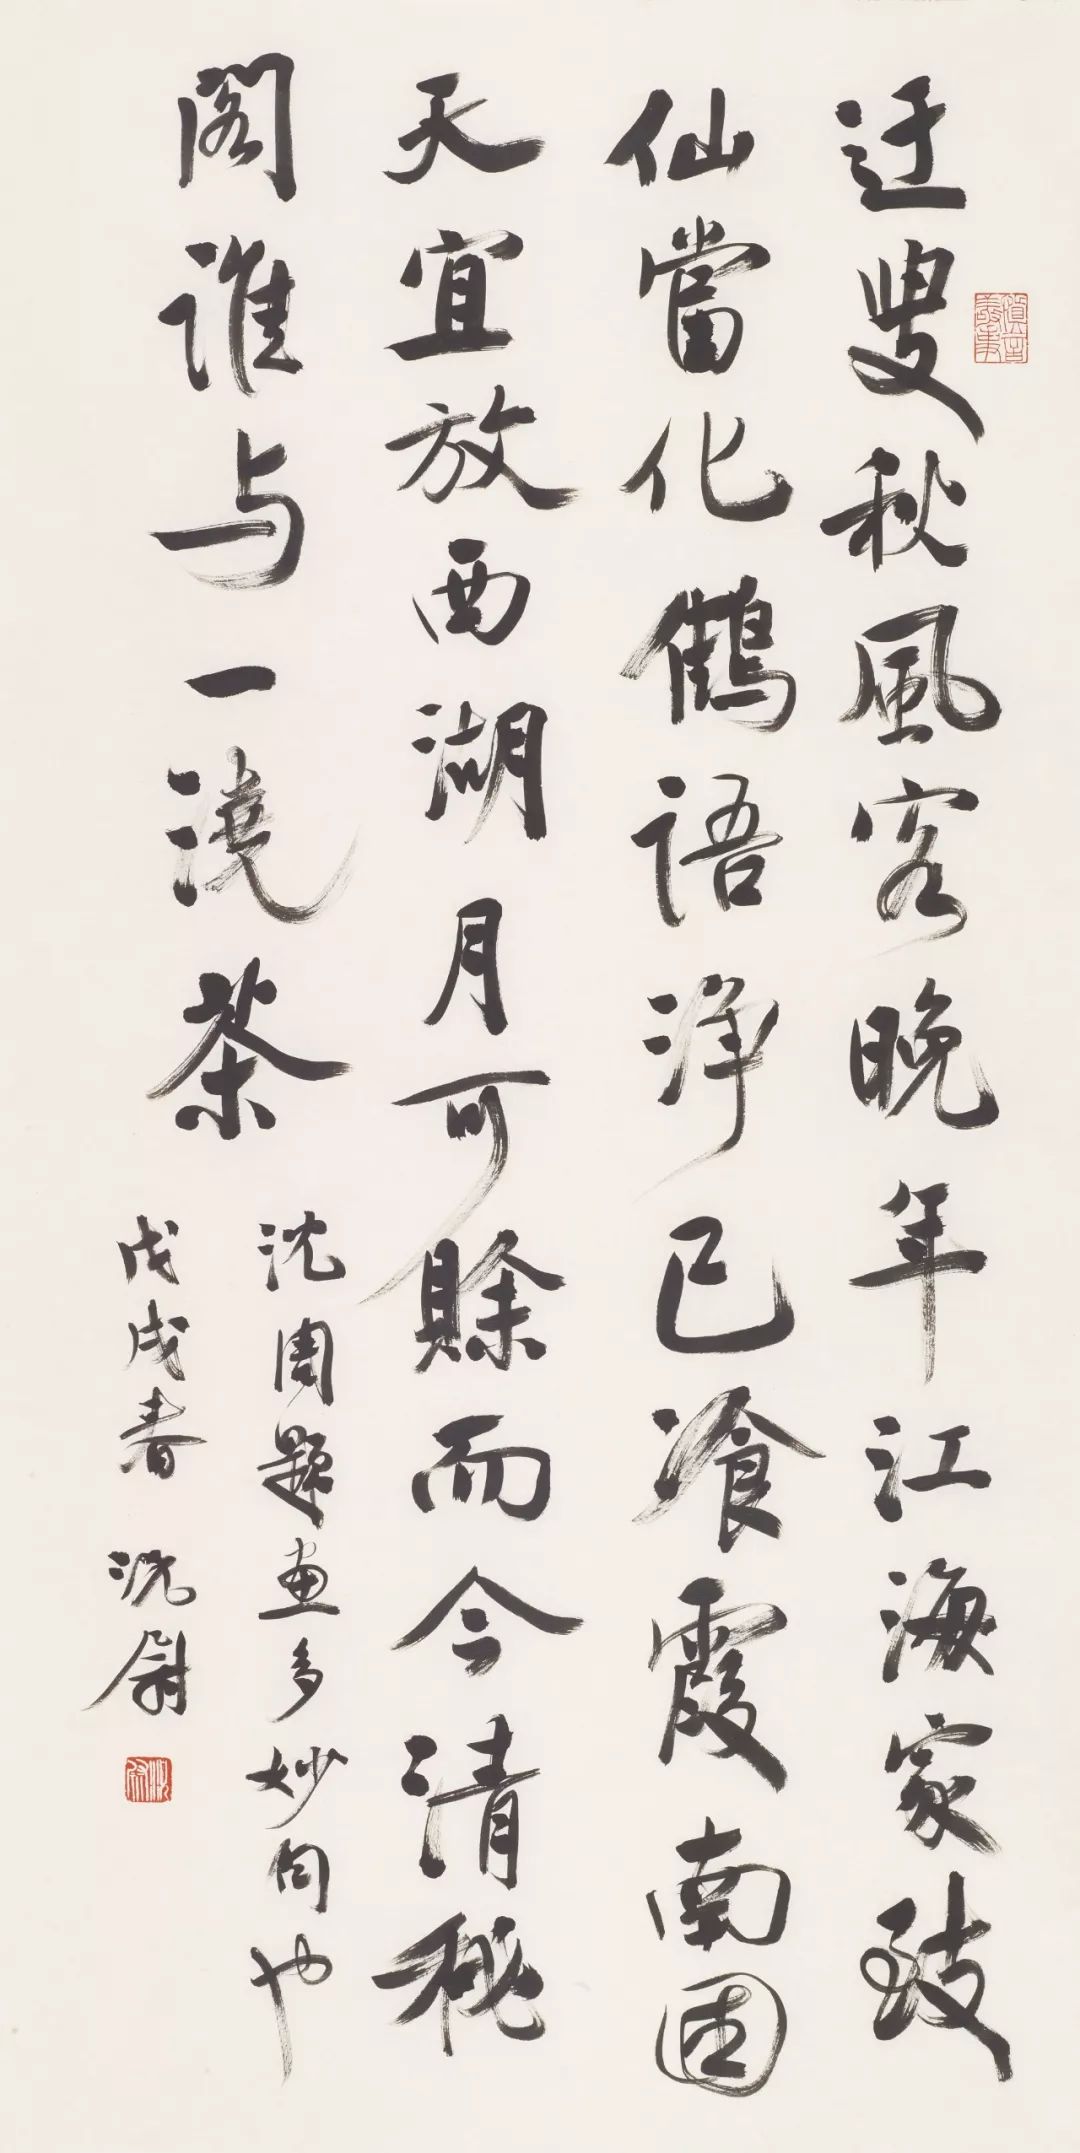 迂叟秋風客晚年江海家致
仙當化鶴語淨已湌霞南
天宜放西湖月可賒而今清秘
閣誰与一澆茶
沈周題画多妙句也
戊戌春 沈